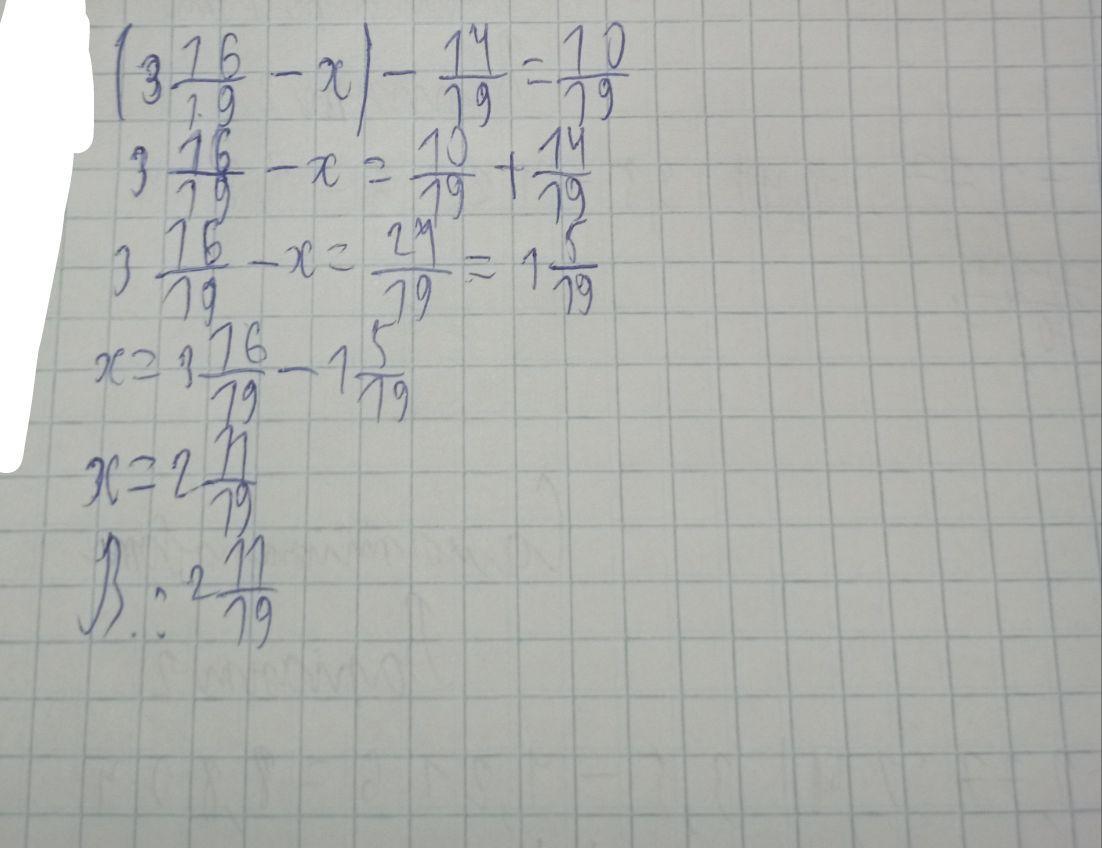 (3 16/19 - x) - 14/19 = 10/19
3 16/19 - x = 10/19 + 14/19
3 16/19 - x = 24/19 = 1 5/19
x = 3 16/19 - 1 5/19
x = 2 11/19
В.: 2 11/19